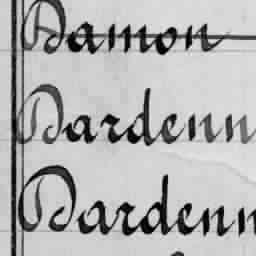 Damon
Dardenn
Dardenn